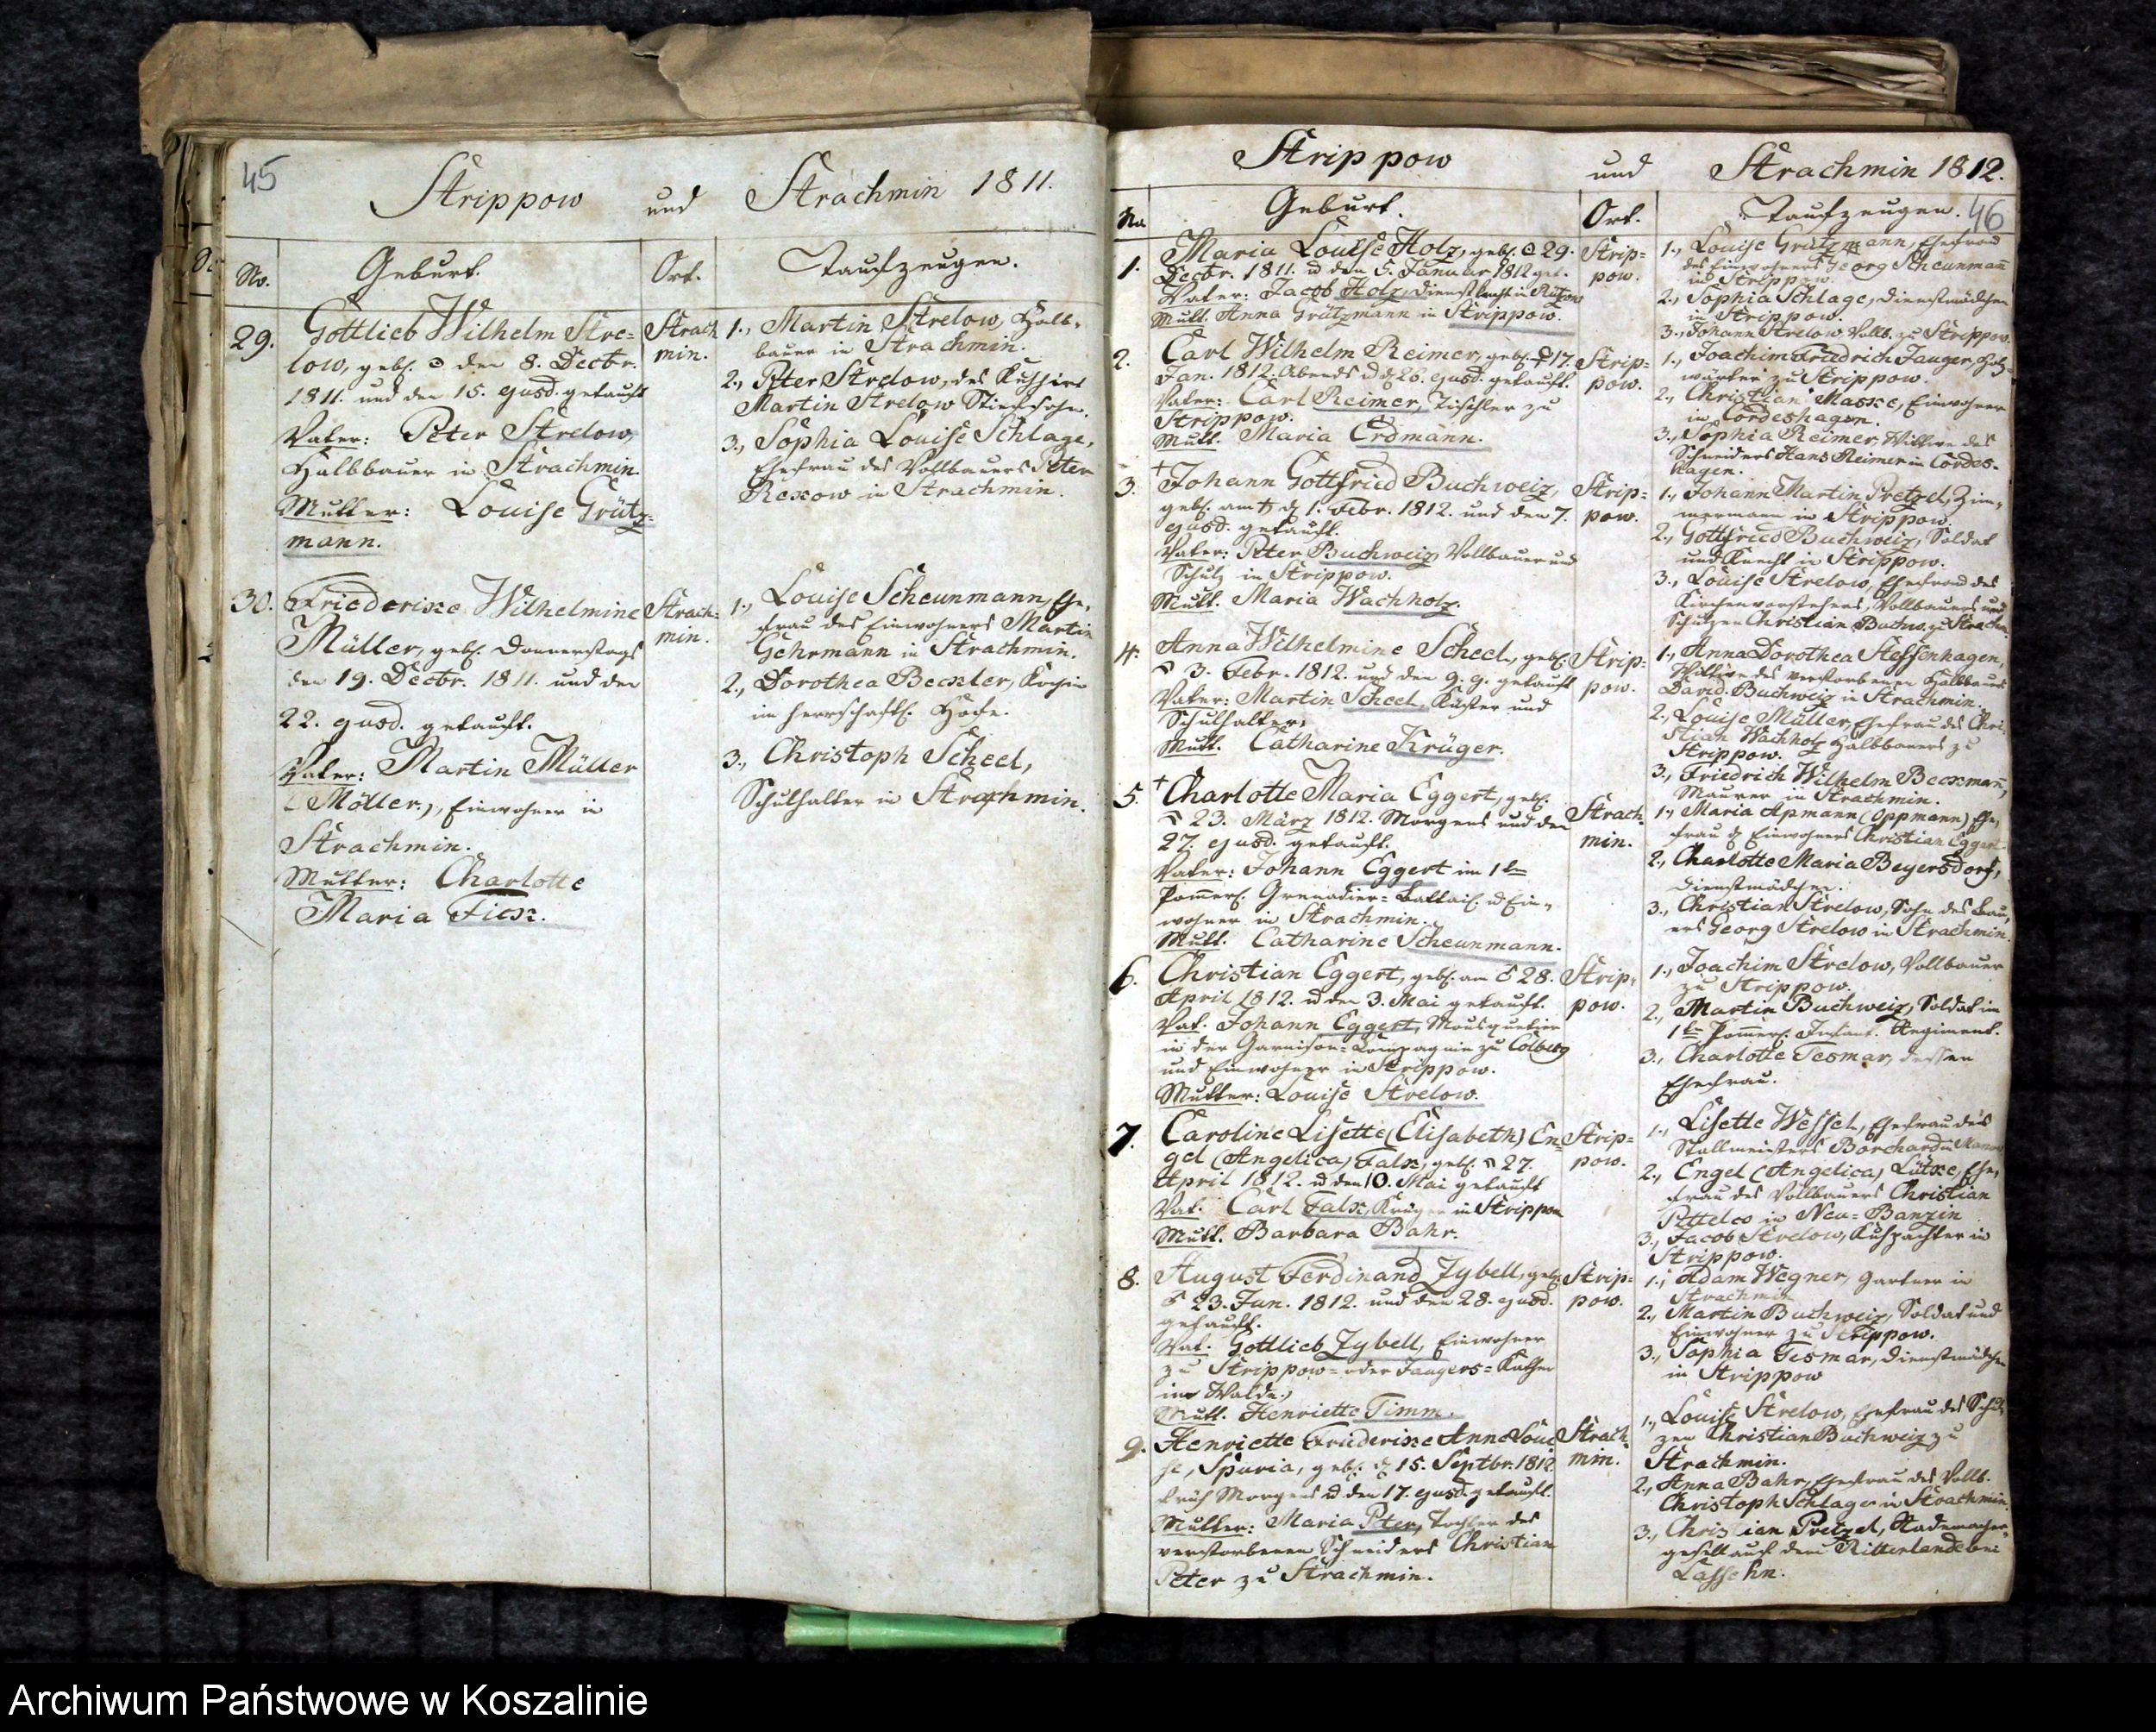 45
Strippow und Strachmin 1811.
No. Geburt. Ort. Taufzeugen.
29. Gottlieb Wilhelm Stre-
low, geb. den 8. Decbr.
1811. und den 15. ejusd. getauft
Vater: Peter Strelow,
Halbbauer in Strachmin.
Mutter: Louise Grütz-
mann.
Strach
min.
1., Martin Strelow, Halb-
bauer in Strachmin.
2., Peter Strelow, des Kuhhirt
Martin Strelow Stiefsohn.
3., Sophia Louise Schlage,
Ehefrau des Vollbauers Peter
Rexow in Strachmin.
30. Friederike Wilhelmine
Müller, geb. Donnerstags
den 19. Decbr. 1811. und den
22. ejusd. getauft.
Vater: Martin Müller
(Möller), Einwohner in
Strachmin.
Mutter: Charlotte
Maria Fick.
Strach-
min.
1., Louise Scheunmann, Ehe-
frau des Einwohners Martin
Gehrmann in Strachmin.
2., Dorothea Beckler, Köchin
im herrschaftl. Hofe.
3., Christoph Scheel,
Schulhalter in Strachmin.
Strippow und Strachmin 1812.
No. Geburt. Ort. Taufzeugen. 46
1. Maria Louise Holz, geb. 29.
Decbr. 1811. u den 5. Januar 1812 get.
Vater: Jacob Holz, Dienstknecht in
Mutt. Anna Grützmann in Strippow.
Strip=
pow.
1., Louise Grützmann, Ehefrau
des Einwohners Georg Scheunmann
in Strippow.
2., Sophia Schlage, Dienstmädchen
in Strippow.
3., Johann Strelow Vollb. zu Strippow.
2. Carl Wilhelm Reimer, geb. 17.
Jan. 1812. Abends u d. 26. ejusd. getauft.
Vater: Carl Reimer, Tischler zu
Strippow.
Mutt. Maria Erdmann.
Strip=
pow.
1., Joachim Friedrich Jauger, Holz-
wärter zu Strippow.
2., Christian Maske, Einwohner
in Cordeshagen.
3., Sophia Reimer, Wittwe des
Schneiders Hans Reimer in Cordes-
hagen.
3. † Johann Gottfried Buchweiz,
geb. am d. 1. Febr. 1812. und den 7.
ejusd. getauft.
Vater: Peter Buchweiz Vollbauer und
Schulz in Strippow.
Mutt. Maria Wachholz.
Strip=
pow.
1., Johann Martin Pretzel, Zim-
mermann in Strippow.
2., Gottfried Buchweiz, Soldat
und Knecht in Strippow.
3., Louise Strelow, Ehefrau des
Kirchenvorstehers, Vollbauers und
Schulzen Christian Buchw. zu Strachm.
4. Anna Wilhelmine Scheel, geb.
3. Febr. 1812. und den 9. ej. getauft
Vater: Martin Scheel, Küster und
Schulhalter.
Mutt. Catharine Krüger.
Strip=
pow.
1., Anna Dorothea Steffenhagen,
Wittwe des verstorbenen Halbbauers
David Buchweiz in Strachmin.
2., Louise Müller, Ehefrau des Chri-
stian Wachholz Halbbauers zu
Strippow.
3., Friedrich Wilhelm Beckmann,
Maurer in Strachmin.
5. † Charlotte Maria Eggert, geb.
23. März 1812. Morgens und den
27. ejusd. getauft.
Vater: Johann Eggert im 1ten
Pommers. Grenadier=Battail. u Ein-
wohner in Strachmin.
Mutt. Catharine Scheunmann.
Strach-
min.
1., Maria Apmann (Oppmann) Ehe-
frau d. Einwohners Christian Eggert.
2., Charlotte Maria Beyersdorf,
Dienstmädchen.
3., Christian Strelow, Sohn des Bau-
ers Georg Strelow in Strachmin.
6. Christian Eggert, geb. am 28.
April 1812. u den 3. Mai getauft.
Vat. Johann Eggert, Mousquetier
in der Garnison=Compagnie zu Colberg
und Einwohner in Strippow.
Mutter: Louise Strelow.
Strip-
pow.
1., Joachim Strelow, Vollbauer
zu Strippow.
2., Martin Buchweiz, Soldat im
1ten Pommers. Infant. Regiment.
3., Charlotte Tesmar, dessen
Ehefrau.
7. Caroline Lisette (Elisabeth) En-
gel (Angelica) Falk, geb. 27.
April 1812. u den 10. Mai getauft
Vat. Carl Falk, Krüger in Strippow
Mutt. Barbara Bahr.
Strip=
pow.
1., Lisette Wessel, Ehefrau des
Stallmeisters Borchard in
2., Engel (Angelica) Lütke, Ehe-
frau des Vollbauers Christian
in Neu=Banzin
3., Jacob Strelow, Kuhpachter in
Strippow.
8. August Ferdinand Zybell, geb.
23. Jun. 1812. und den 28. ejusd.
getauft.
Vat. Gottlieb Zybell, Einwohner
zu Strippow= oder Jaugers=Kathen
im Walde.
Mutt. Henriette Timm.
Strip=
pow.
1., Adam Wegner, Gärtner in
Strachmin
2., Martin Buchweiz, Soldat und
Einwohner zu Strippow.
3., Sophia Tesmar, Dienstmädchen
in Strippow
9. Henriette Friederike Anne Loui
se, Spuria, geb. d. 15. Septbr. 1812
früh Morgens u den 17. ejusd. getauft.
Mutter: Maria Peter, Tochter des
verstorbenen Schneiders Christian
Peter zu Strachmin.
Strach-
min.
1., Louise Strelow, Ehefrau des Schul-
zen Christian Buchweiz zu
Strachmin.
2., Anna Bahr, Ehefrau des Vollb.
Christoph Schlage in Strachmin.
3., Christian Pretzel, Rademacher-
gesell auf dem Ritterlande bei
Lassehn.
Archiwum Państwowe w Koszalinie